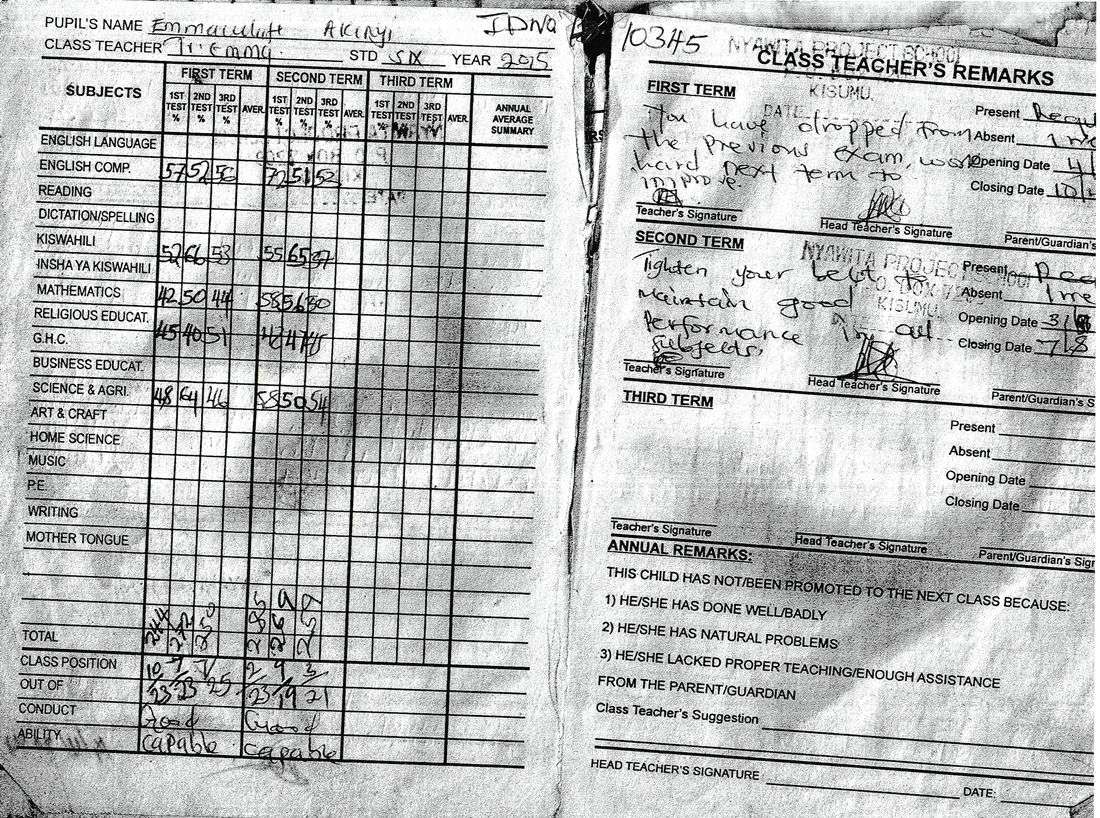 PUPIL'S NAME Emmaculatt Akinyi IDNO
CLASS TEACHER Tr. Emma. STD SIX YEAR 2015
SUBJECTS FIRST TERM SECOND TERM THIRD TERM ANNUAL AVERAGE SUMMARY
1ST TEST % 2ND TEST % 3RD TEST % AVER. 1ST TEST % 2ND TEST % 3RD TEST % AVER. 1ST TEST % 2ND TEST % 3RD TEST % AVER.
ENGLISH LANGUAGE
ENGLISH COMP. 57 52 56 72 51 52
READING
DICTATION/SPELLING
KISWAHILI 52 66 53 55 65 37
INSHA YA KISWAHILI
MATHEMATICS 42 50 44 58 56 80
RELIGIOUS EDUCAT.
G.H.C. 45 40 51
BUSINESS EDUCAT.
SCIENCE & AGRI. 48 64 46 58 50 54
ART & CRAFT
HOME SCIENCE
MUSIC
P.E.
WRITING
MOTHER TONGUE
TOTAL 244 272 250 285 269 259
CLASS POSITION 10 7 7 2 9 3
OUT OF 23 23 25 23 19 21
CONDUCT Good Good
ABILITY capable capable
10345 NYAWITA PROJECT SCHOOL
CLASS TEACHER'S REMARKS
KISUMU.
DATE
FIRST TERM
You have dropped from
the previous exam, work
hard next term to
improve.
Present
Absent
Opening Date
Closing Date
Teacher's Signature Head Teacher Signature Parent/Guardian's
SECOND TERM
NYAWITA PROJECT
KISUMU
Tighten your belt to
maintain good
Performance in all
subjects.
Present
Absent
Opening Date
Closing Date
Teacher's Signature Head Teacher's Signature Parent/Guardian's S
THIRD TERM
Present
Absent
Opening Date
Closing Date
Teacher's Signature Head Teacher's Signature Parent/Guardian's Sig
ANNUAL REMARKS:
THIS CHILD HAS NOT/BEEN PROMOTED TO THE NEXT CLASS BECAUSE:
1) HE/SHE HAS DONE WELL/BADLY
2) HE/SHE HAS NATURAL PROBLEMS
3) HE/SHE LACKED PROPER TEACHING/ENOUGH ASSISTANCE
FROM THE PARENT/GUARDIAN
Class Teacher's Suggestion
HEAD TEACHER'S SIGNATURE DATE: